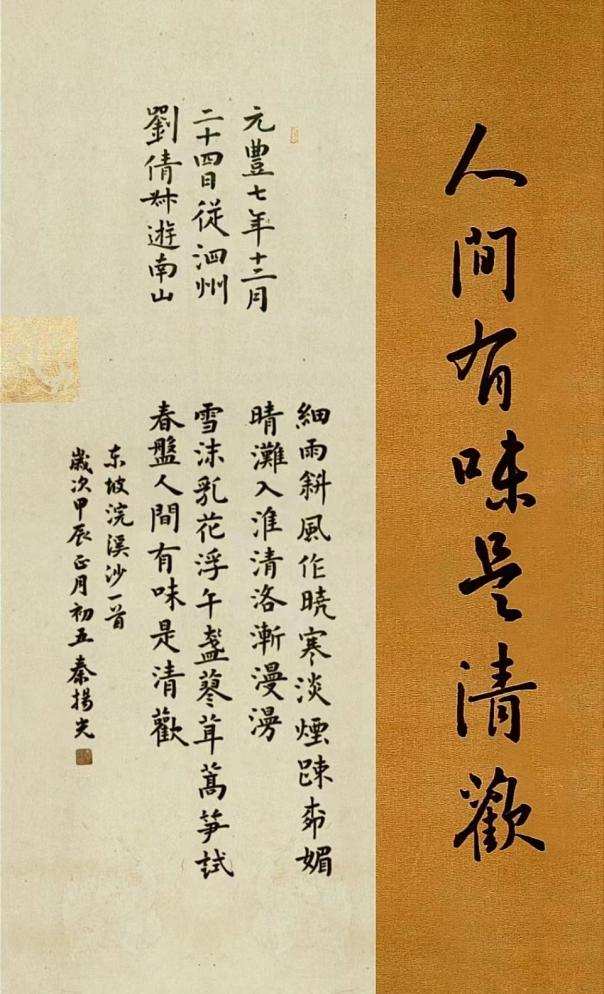 人間有味是清歡
元豊七年十二月
二十四日從泗州
劉倩叔遊南山
細雨斜風作曉寒淡煙踈柳媚
晴灘入淮清洛漸漫漫
雪沫乳花浮午盞蓼茸蒿笋試
春盤人間有味是清歡
东坡浣溪沙一首
歲次甲辰正月初五秦揚光